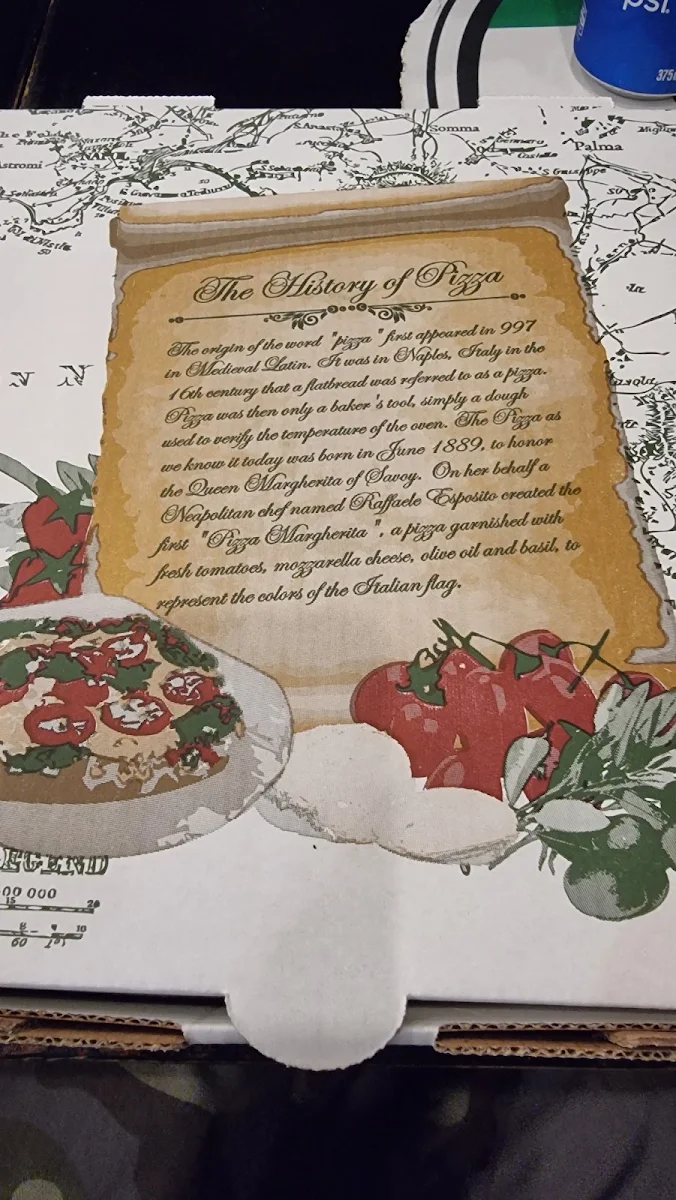 375
Somma
Palma
The History of Pizza
The origin of the word "pizza" first appeared in 997
in Medieval Latin. It was in Naples, Italy in the
16th century that a flatbread was referred to as a pizza.
Pizza was then only a baker's tool, simply a dough
used to verify the temperature of the oven. The Pizza as
we know it today was born in June 1889, to honor
the Queen Margherita of Savoy. On her behalf a
Neapolitan chef named Raffaele Esposito created the
first "Pizza Margherita", a pizza garnished with
fresh tomatoes, mozzarella cheese, olive oil and basil, to
represent the colors of the Italian flag.
EGEND
00 000
15 20